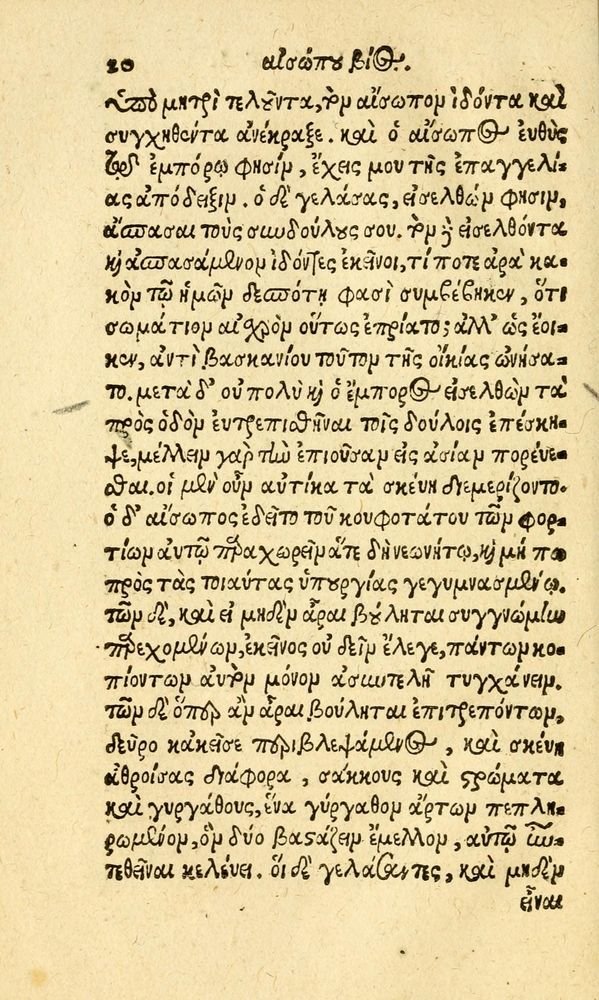 20 αἰσώπου βίος.
ὑπὸ μητρὶ τελοῦντα, τὸν αἴσωπον ἰδόντα καὶ
συγχηθέντα ἀνέκραξε. καὶ ὁ αἴσωπος εὐθὺς
τῷ ἐμπόρῳ φησίν, ἔχεις μου τῆς ἐπαγγελί-
ας ἀπόδειξιν. ὁ δὲ γελάσας, εἰσελθὼν φησὶν,
ἄσπασαι τοὺς συνδούλους σου. τὸν δὲ εἰσελθόντα
καὶ ἀσπασάμενον ἰδόντες ἐκεῖνοι, τί ποτε ἄρα κα-
κὸν τῷ ἡμῶν δεσπότῃ φασὶ συμβέβηκεν, ὅτι
σωμάτιον αἰσχρὸν οὕτως ἐπρίατο; ἀλλ' ὡς ἔοι-
κεν, ἀντὶ βασκανίου τοῦτον τῆς οἰκίας ὠνήσα-
το. μετὰ δ' οὐ πολὺ καὶ ὁ ἔμπορος εἰσελθὼν τὰ
πρὸς ὁδὸν εὐτρεπισθῆναι τοῖς δούλοις ἐπέσκη-
ψε, μέλλειν γὰρ τὴν ἐπιοῦσαν εἰς ἀσίαν πορεύε-
σθαι. οἱ μὲν οὖν αὐτίκα τὰ σκεύη διεμερίζοντο.
ὁ δ' αἴσωπος ἐδεῖτο τοῦ κουφοτάτου τῶν φορ-
τίων αὐτῷ παραχωρεῖν ἅτε δὴ νεωνήτῳ, καὶ μή πω
πρὸς τὰς τοιαύτας ὑπουργίας γεγυμνασμένῳ.
τῶν δὲ, καὶ εἰ μηδὲν ἆραι βούληται συγγνώμην
παρεχομένων, ἐκεῖνος οὐ δεῖν ἔλεγε, πάντων κο-
πιόντων αὐτὸν μόνον ἀσυντελῆ τυγχάνειν.
τῶν δὲ ὅπερ ἂν ἆραι βούληται ἐπιτρεπόντων,
δεῦρο κἀκεῖσε περιβλεψάμενος, καὶ σκεύη
ἀθροίσας διάφορα, σάκκους καὶ στρώματα
καὶ γυργάθους, ἕνα γύργαθον ἄρτων πεπλη-
ρωμένον, ὃν δύο βαστάζειν ἔμελλον, αὐτῷ ἐπι-
τεθεῖναι κελεύει. οἱ δὲ γελάσαντες, καὶ μηδὲν
εἶναι